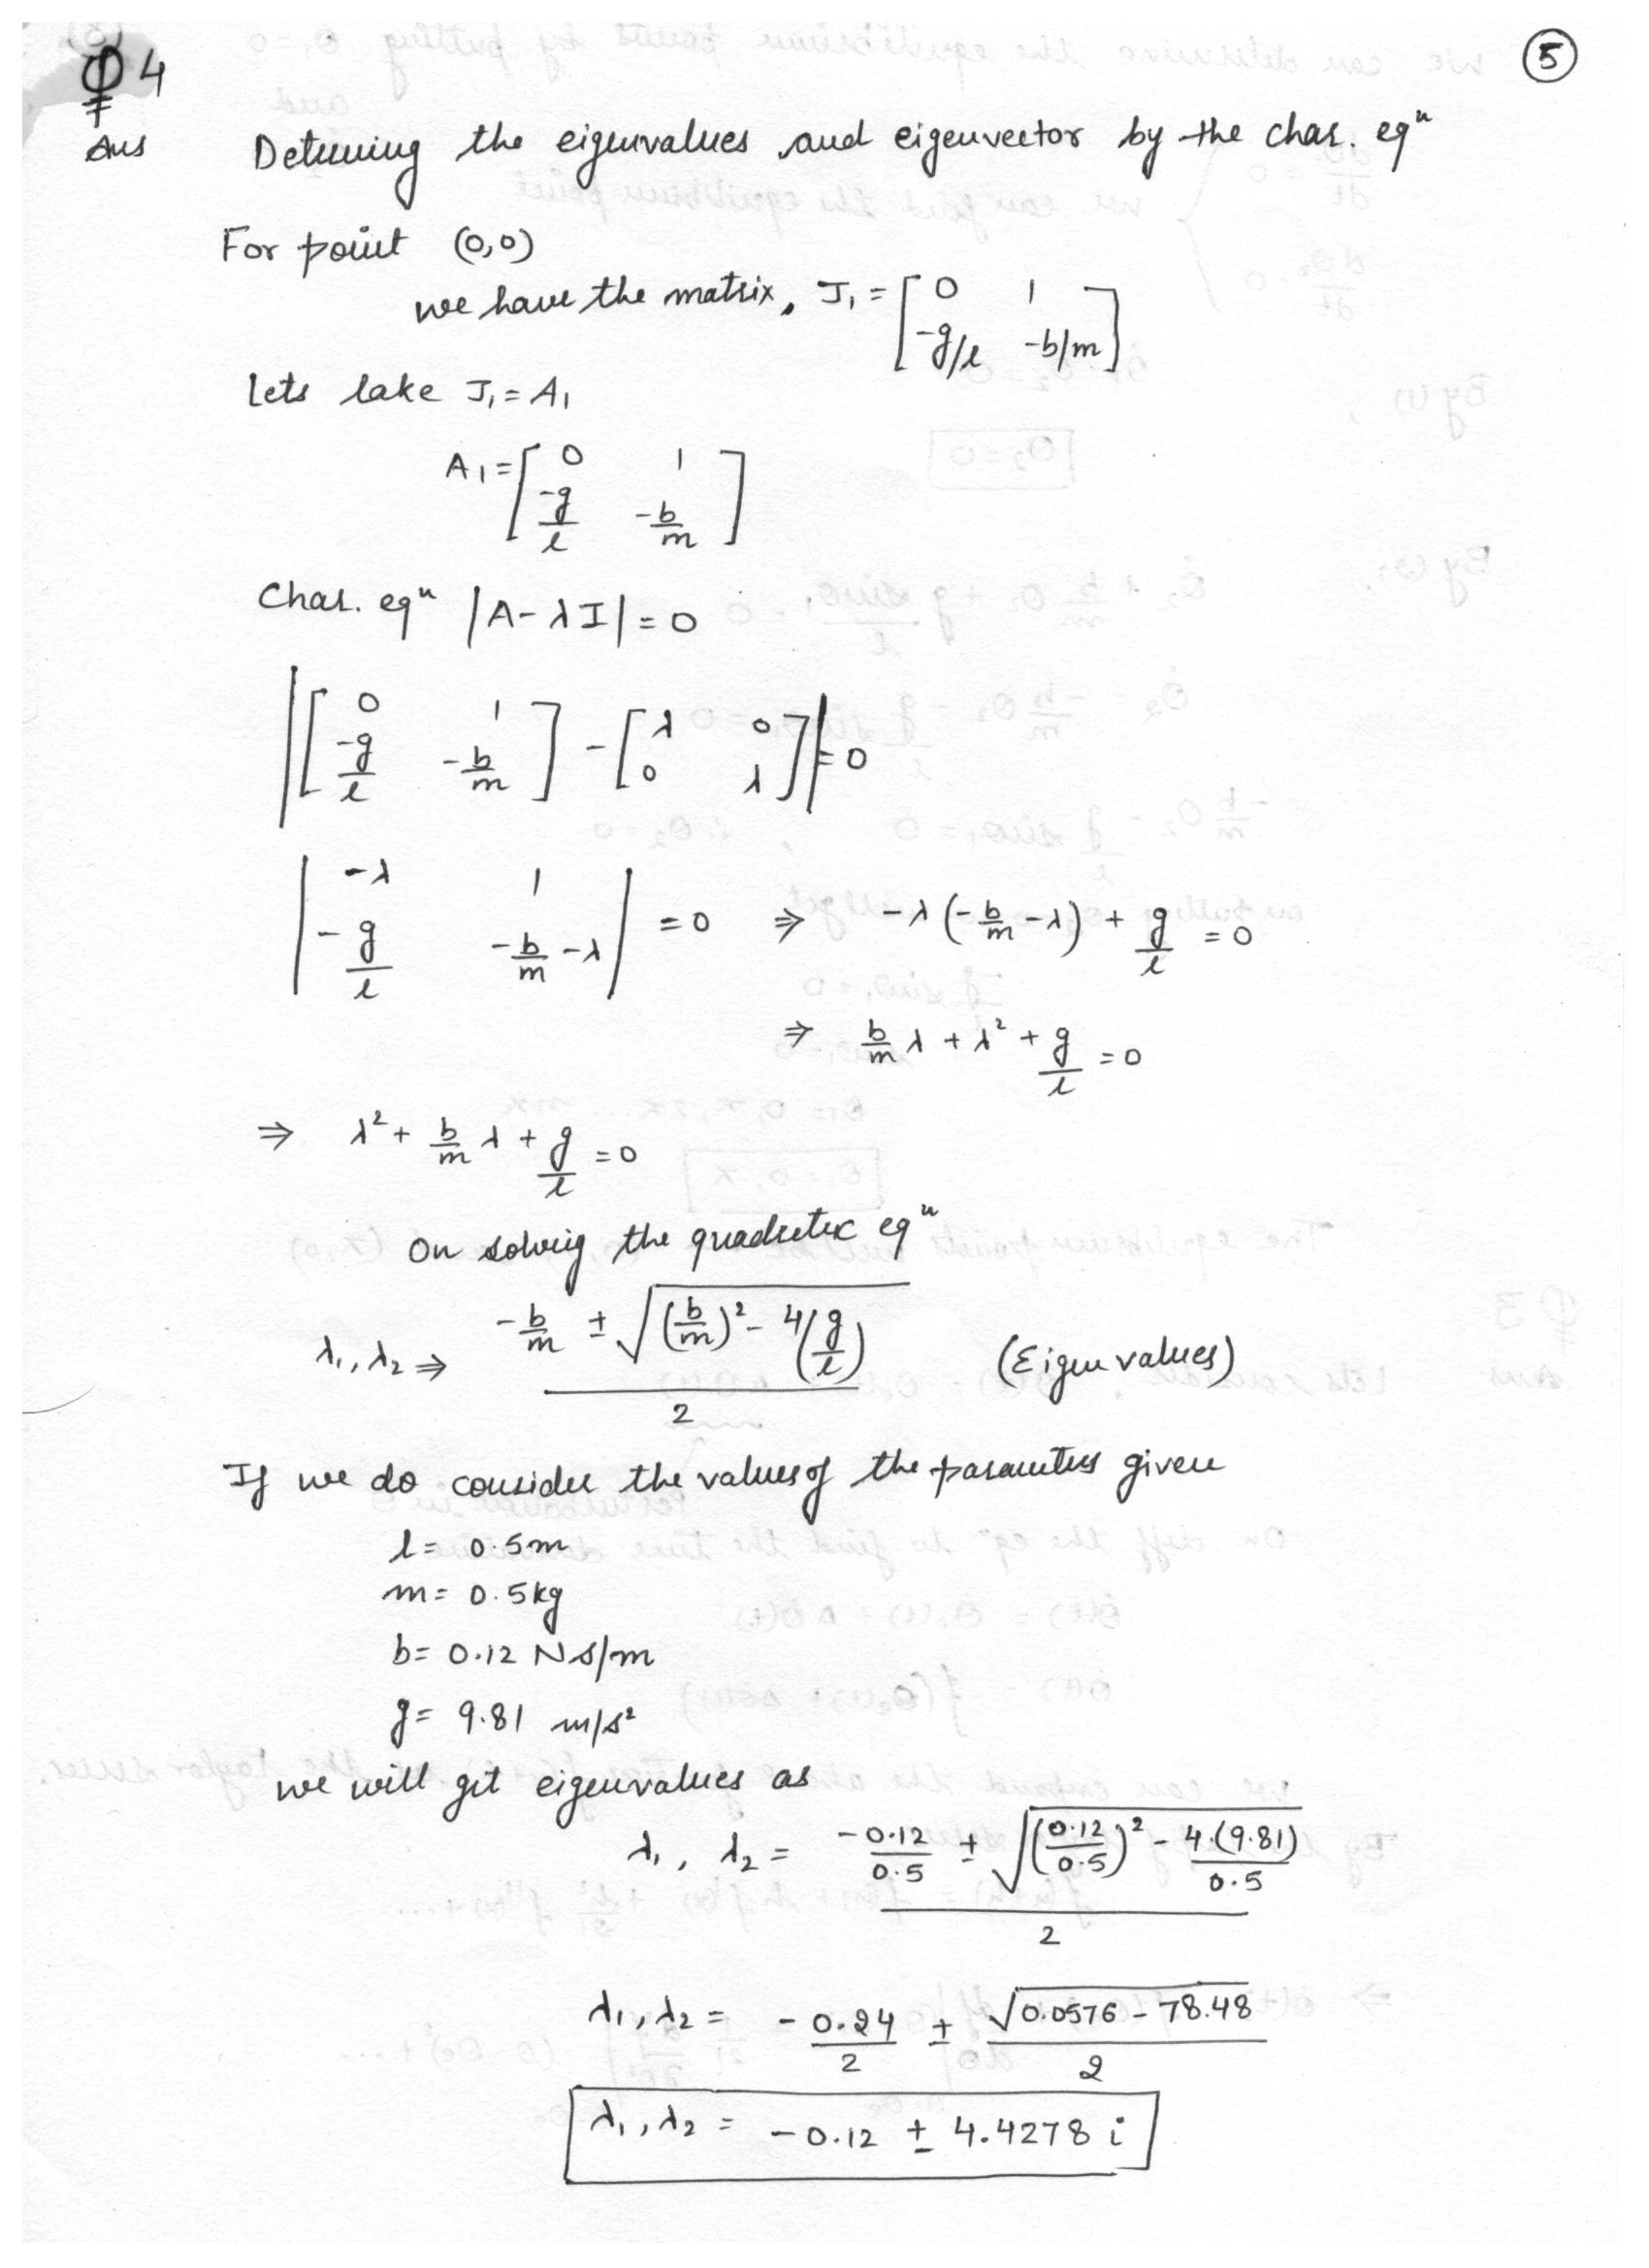 5
Q 4
Ans Detening the eigenvalues and eigenvector by the char. eqn
For point (0,0)
we have the matrix, J₁ = [ 0 1
-g/l -b/m ]
Lets take J₁ = A₁
A₁ = [ 0 1
-g/l -b/m ]
Char. eqn |A - λI| = 0
| [ 0 1
-g/l -b/m ] - [ λ 0
0 λ ] | = 0
| -λ 1
-g/l -b/m - λ | = 0 ⇒ -λ(-b/m - λ) + g/l = 0
⇒ b/m λ + λ² + g/l = 0
⇒ λ² + b/m λ + g/l = 0
On solving the quadretic eqn
λ₁, λ₂ ⇒ (-b/m ± √((b/m)² - 4(g/l))) / 2 (Eigenvalues)
If we do consider the values of the parameters given
l = 0.5m
m = 0.5kg
b = 0.12 Ns/m
g = 9.81 m/s²
we will get eigenvalues as
λ₁, λ₂ = (-0.12/0.5 ± √((0.12/0.5)² - 4.(9.81)/0.5)) / 2
λ₁, λ₂ = -0.24/2 ± √(0.0576 - 78.48)/2
λ₁, λ₂ = -0.12 ± 4.4278 i